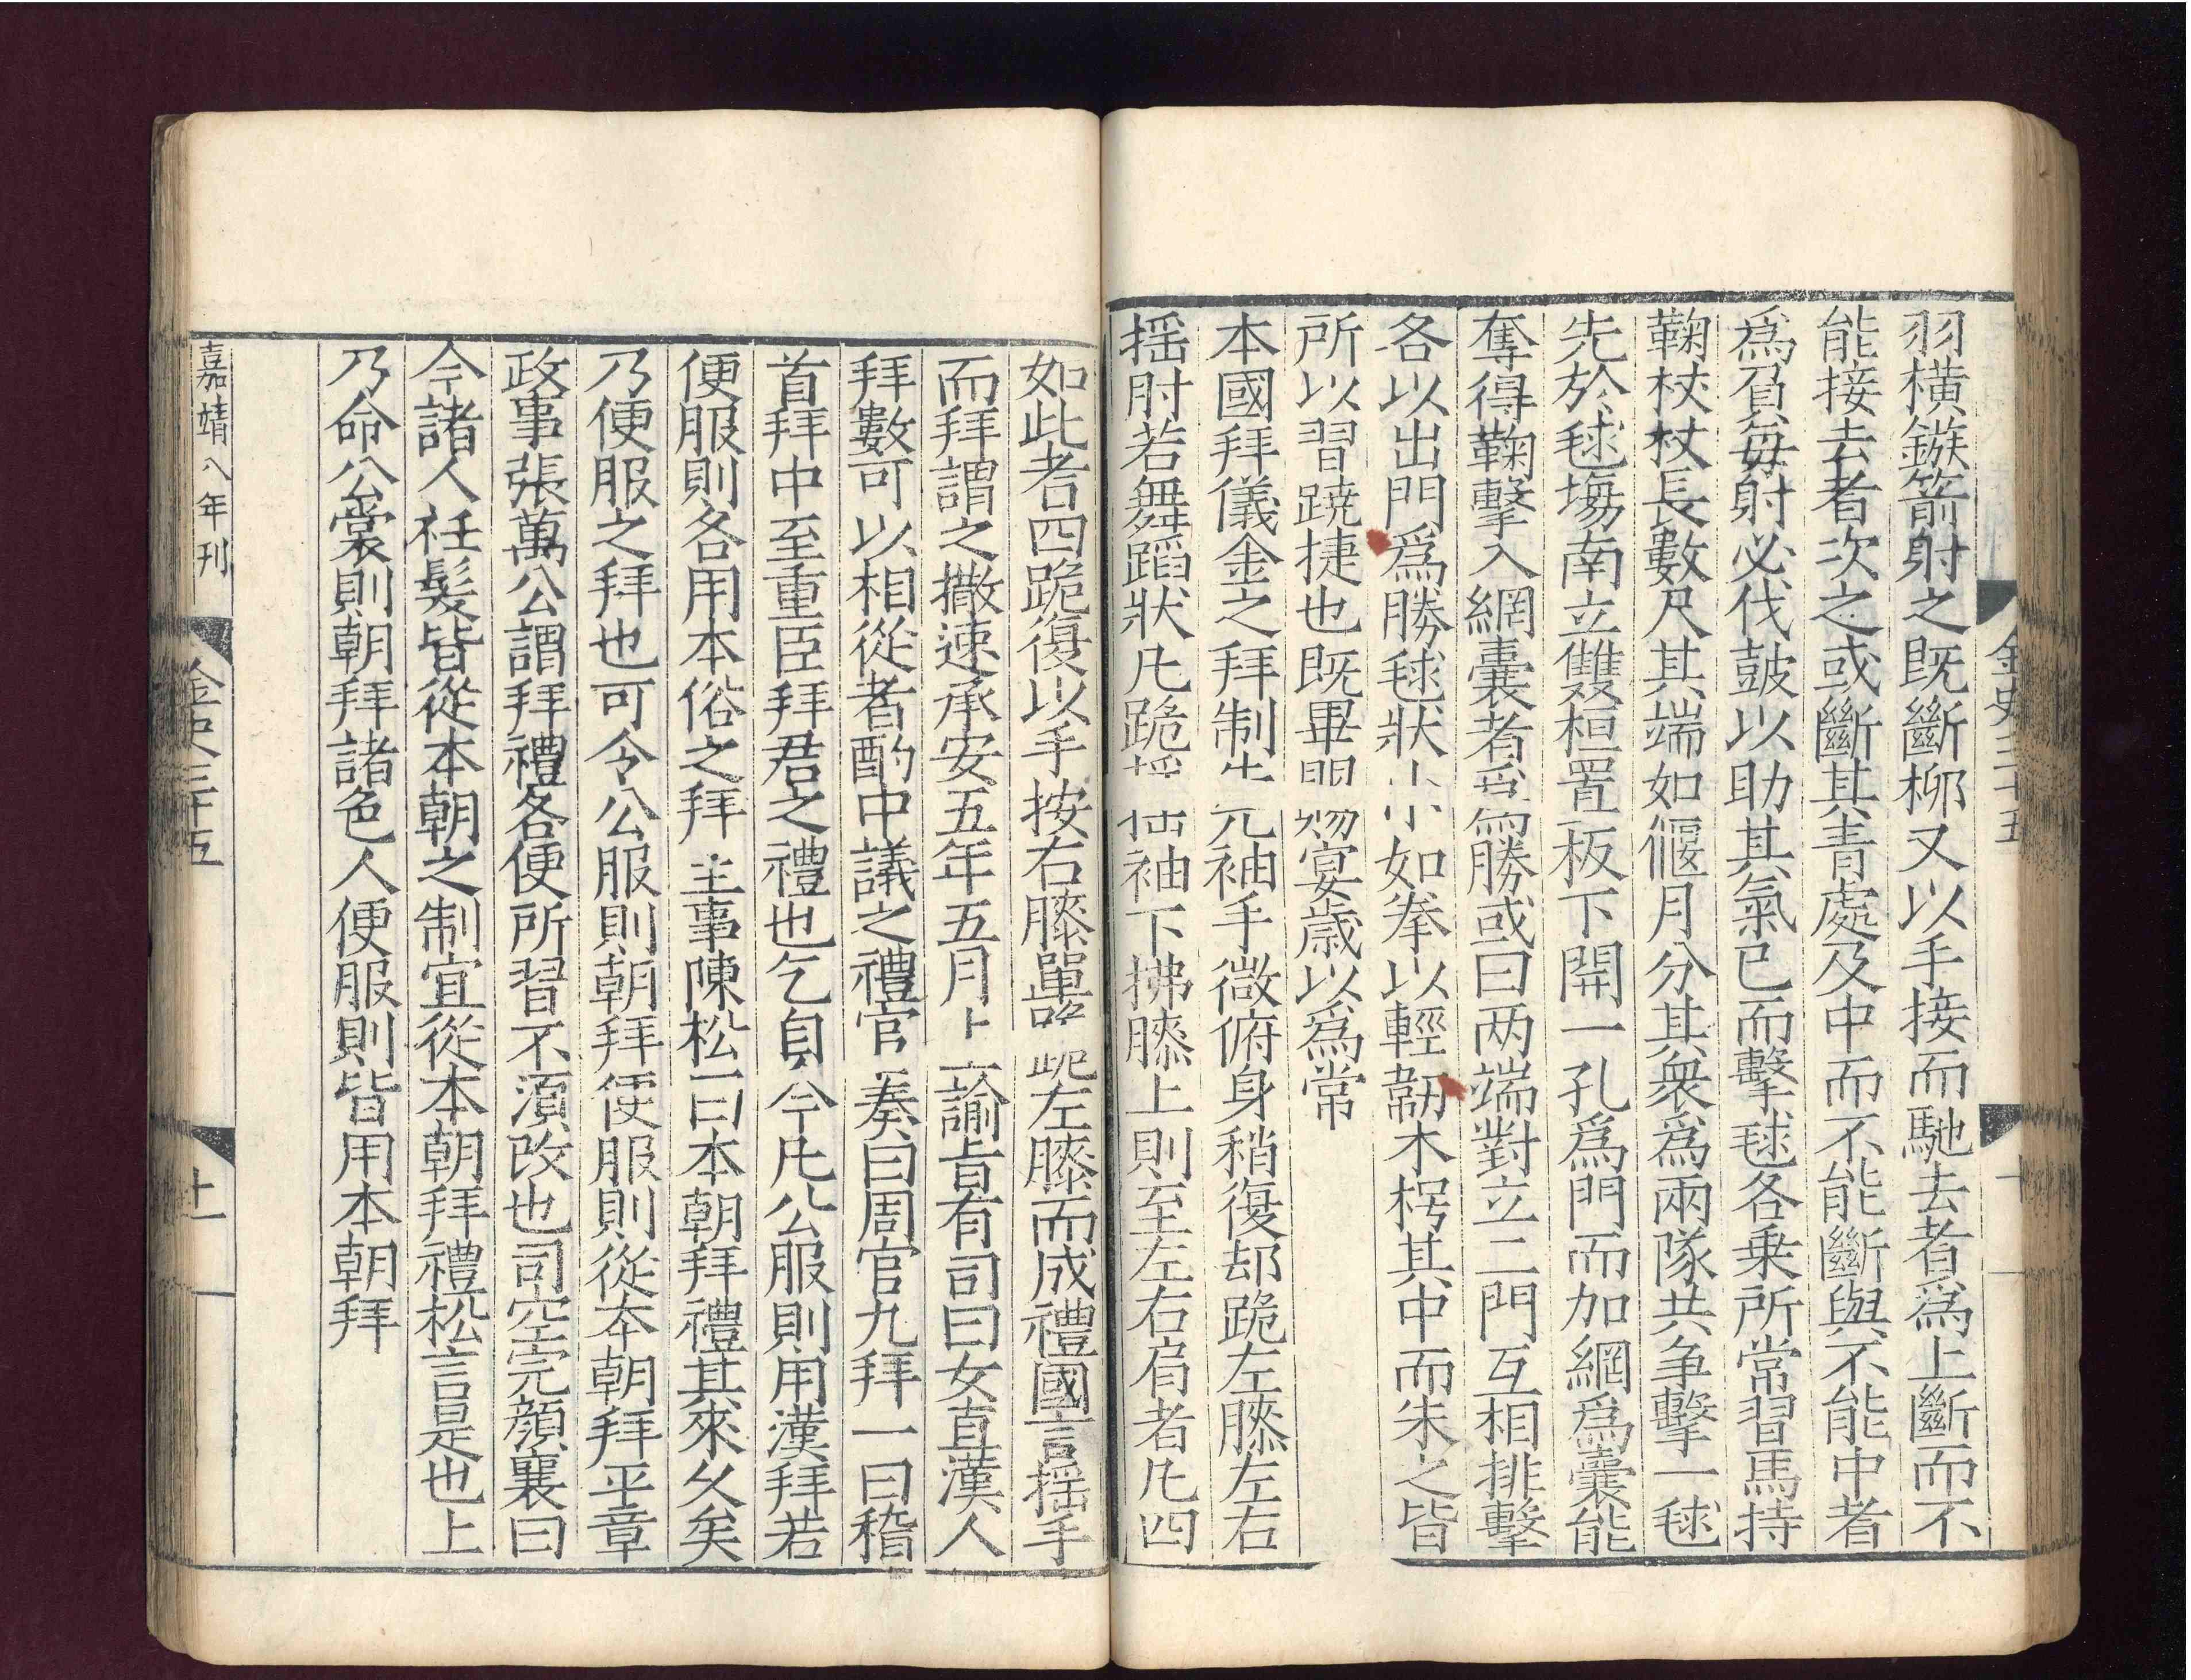 羽橫鏃箭射之既斷柳又以手接而馳去者爲上斷而不
能接去者次之或斷其青處及中而不能斷與不能中者
爲負每射必伐鼓以助其氣已而擊毬各乗所常習馬持
鞠杖杖長數尺其端如偃月分其衆爲兩隊共争擊一毬
先於毬塲南立雙桓置板下開一孔爲門而加網爲囊能
奪得鞠擊入網囊者爲勝或曰两端對立二門互相排擊
各以出門爲勝毬狀小如拳以輕韌木枵其中而朱之皆
所以習蹺捷也既畢賜宴歳以爲常
本國拜儀金之拜制先袖手微俯身稍復却跪左膝左右
揺肘若舞蹈狀凡跪揺袖下拂膝上則至左右肩者凡四
金史三十五
十
如此者四跪復以手按右膝單跪左膝而成禮國言揺手
而拜謂之撒速承安五年五月上諭旨有司曰女直漢人
拜數可以相從者酌中議之禮官奏曰周官九拜一曰稽
首拜中至重臣拜君之禮也乞自今凡公服則用漢拜若
便服則各用本俗之拜主事陳松曰本朝拜禮其來久矣
乃便服之拜也可令公服則朝拜便服則從本朝拜平章
政事張萬公謂拜禮各便所習不須改也司空完顔襄曰
今諸人衽髮皆從本朝之制宜從本朝拜禮松言是也上
乃命公裳則朝拜諸色人便服則皆用本朝拜
嘉靖八年刊
金史三十五
十一